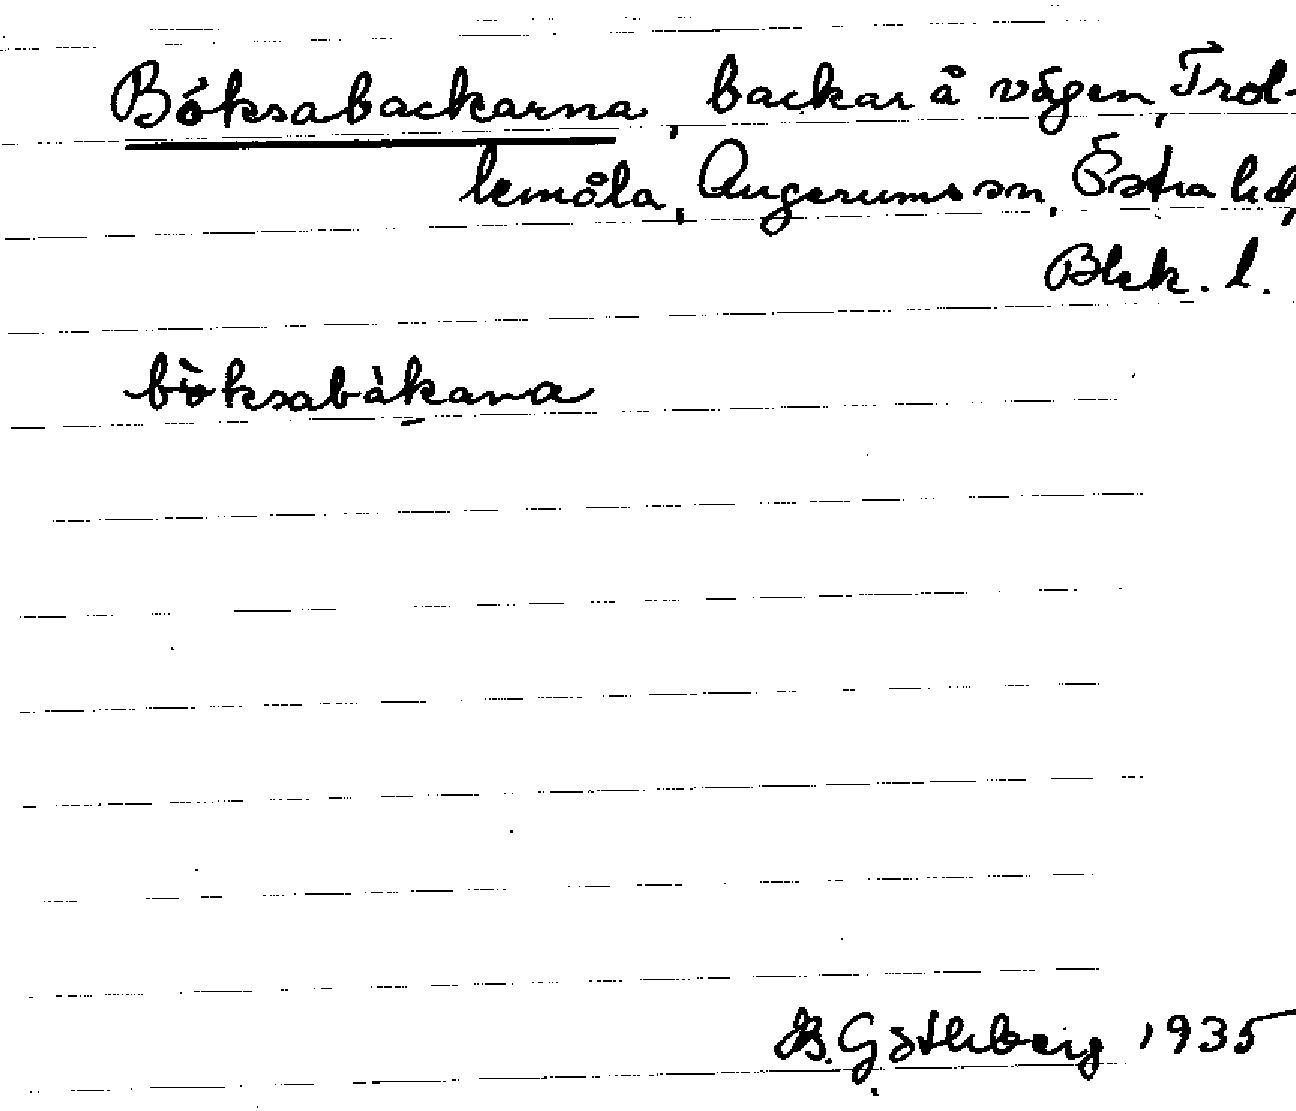 Bóksabackarna, backar å vägen, Trol-
lemåla, Augerums sn, Östra hd,
Blek. l.
bòksabàkana
B. Göthberg 1935